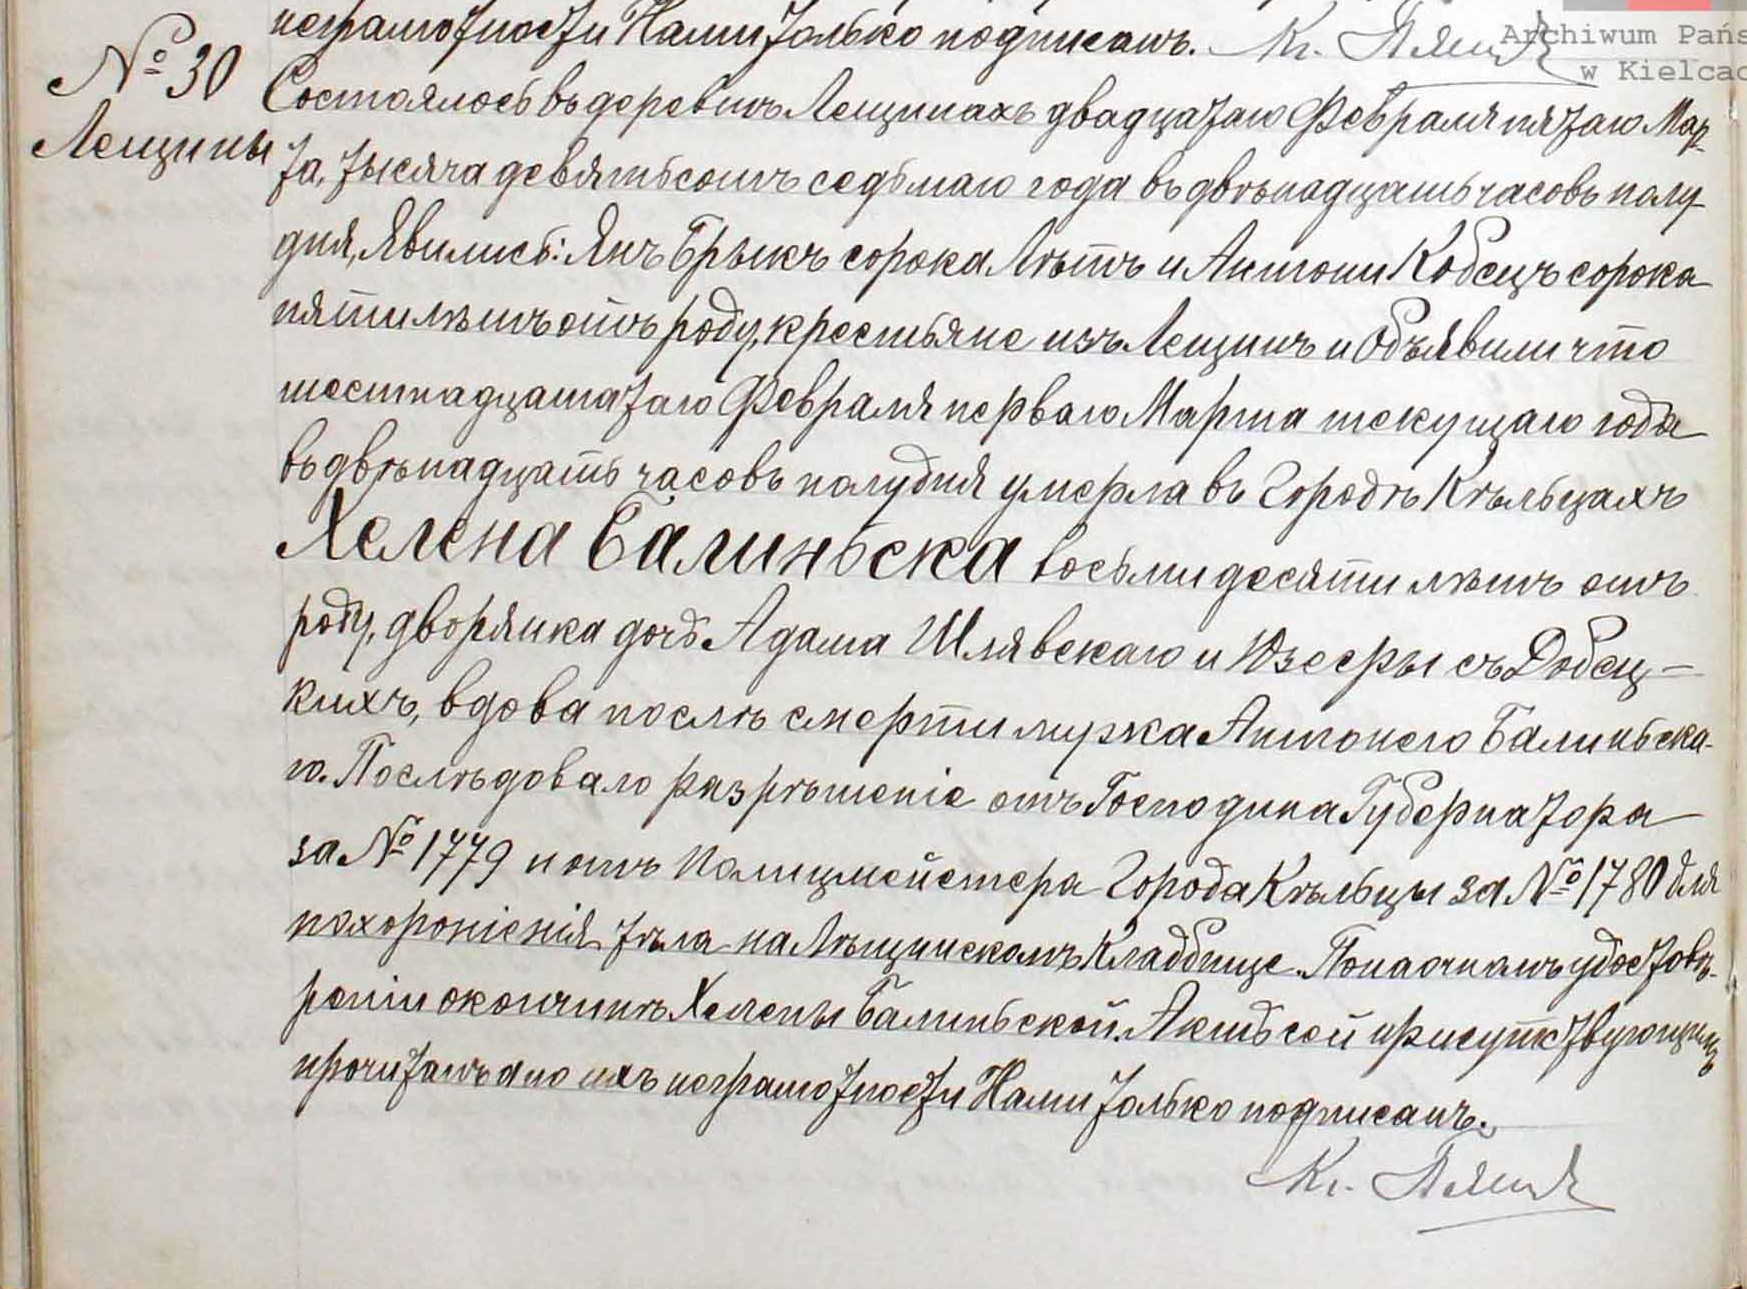 неграмотности Нами только подписанъ. Кс. Пяще
Archiwum Pańs
w Kielcac
№ 30
Лещины
Состоялось въ деревнѣ Лещинахъ двадцатаго Февраля пятаго Мар-
та, тысяча девятьсотъ седьмаго года въ двѣнадцать часовъ полу-
дня, Явились: Янъ Брыкъ сорока лѣтъ и Антони Кобецъ сорока
пяти лѣтъ отъ роду, крестьяне изъ Лещинъ и Объявили что
шестнадцататаго Февраля перваго Марта текущаго года
въ двѣнадцать часовъ полудня умерла въ Городѣ Кѣльцахъ
Хелена Балиньска восьмидесяти лѣтъ отъ
роду, дворянка дочь Адама Шлявскаго и Юзефы съ Добец-
кихъ, вдова послѣ смерти мужа Антонего Балиньска-
го. Послѣдовало разрѣшеніе отъ Господина Губернатора
за № 1779 и отъ Полицмейстера Города Кѣльцы за № 1780 для
похороніенія тѣла на Лѣщинскомъ Кладбище. По наочномъ удостовѣ-
реніи о кончинѣ Хелены Балиньской. Актъ сей присутствующимъ
прочитанъ а по ихъ неграмотности Нами только подписанъ.
Кс.